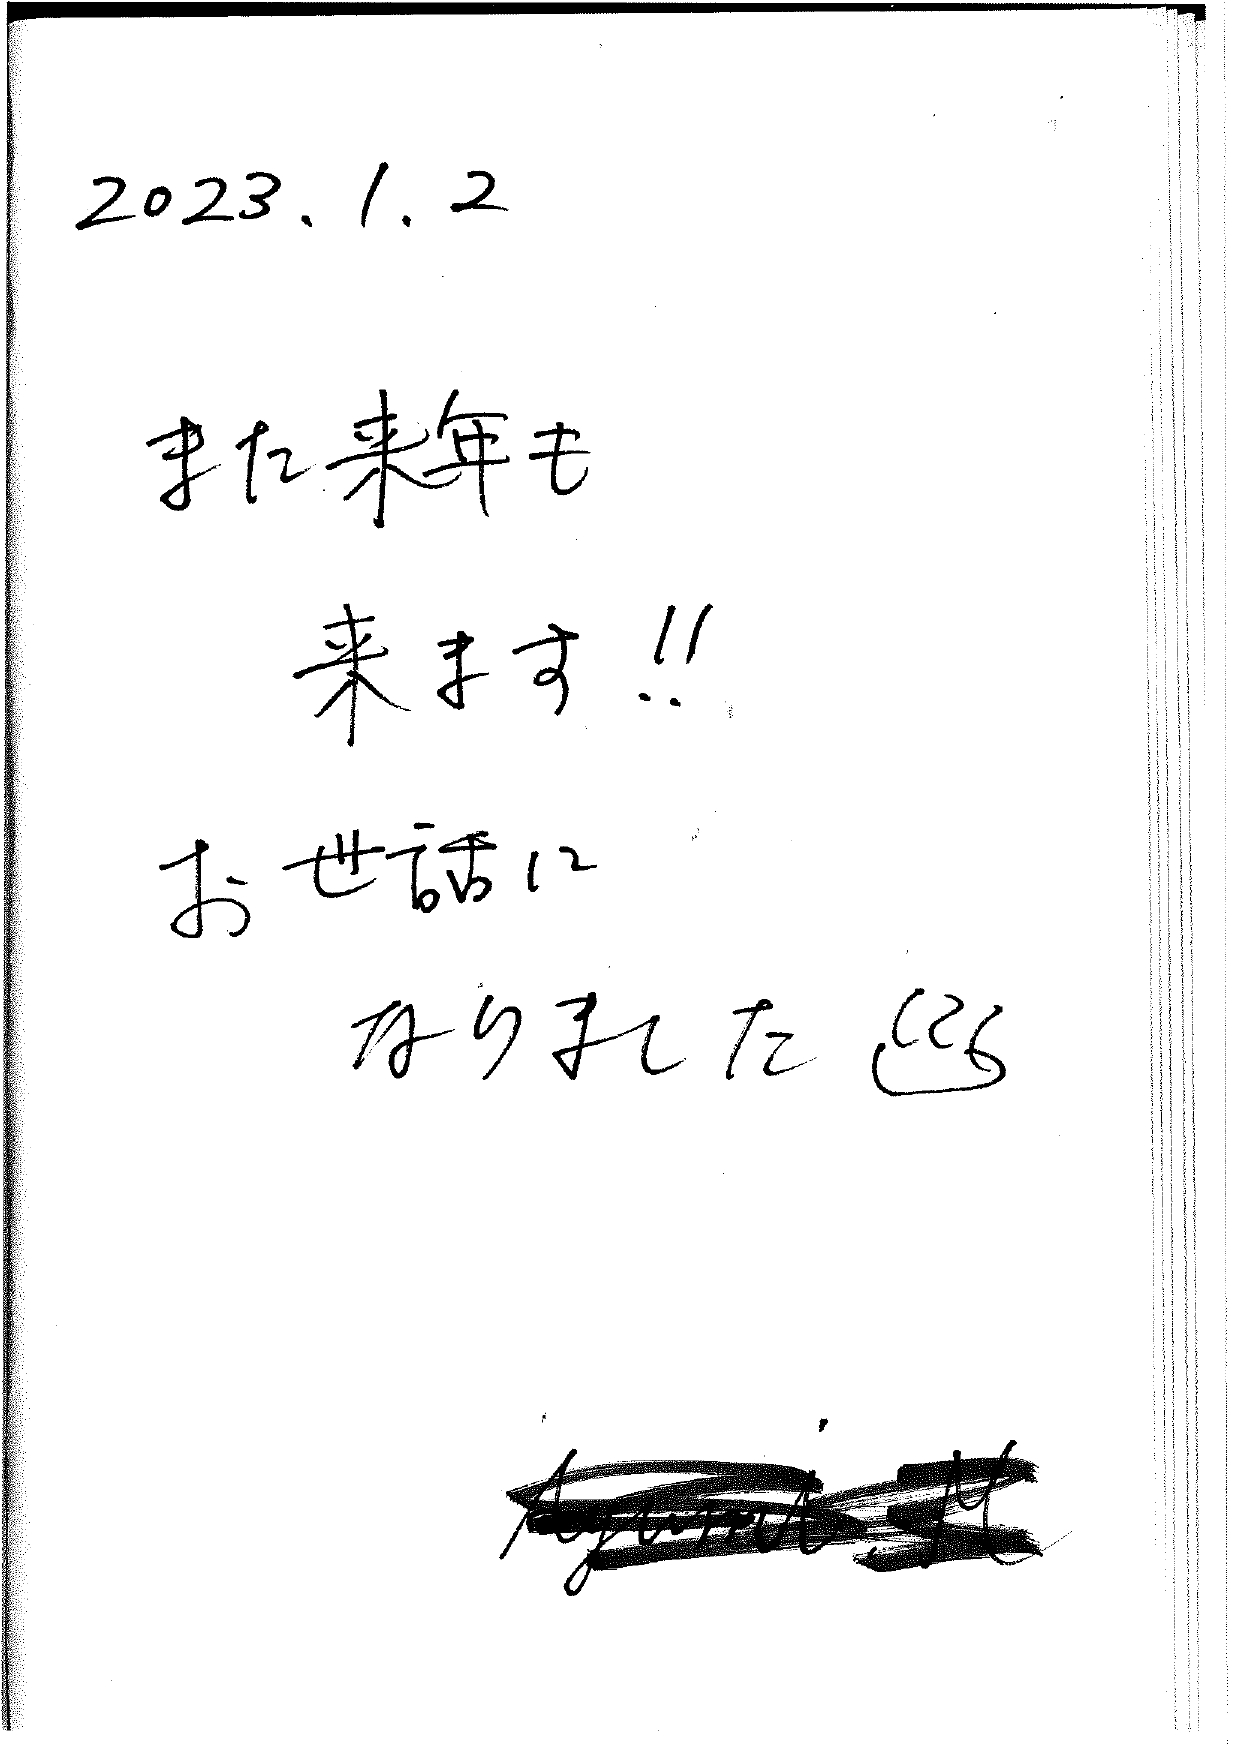 2023.1.2
また来年も
来ます!!
お世話に
なりました